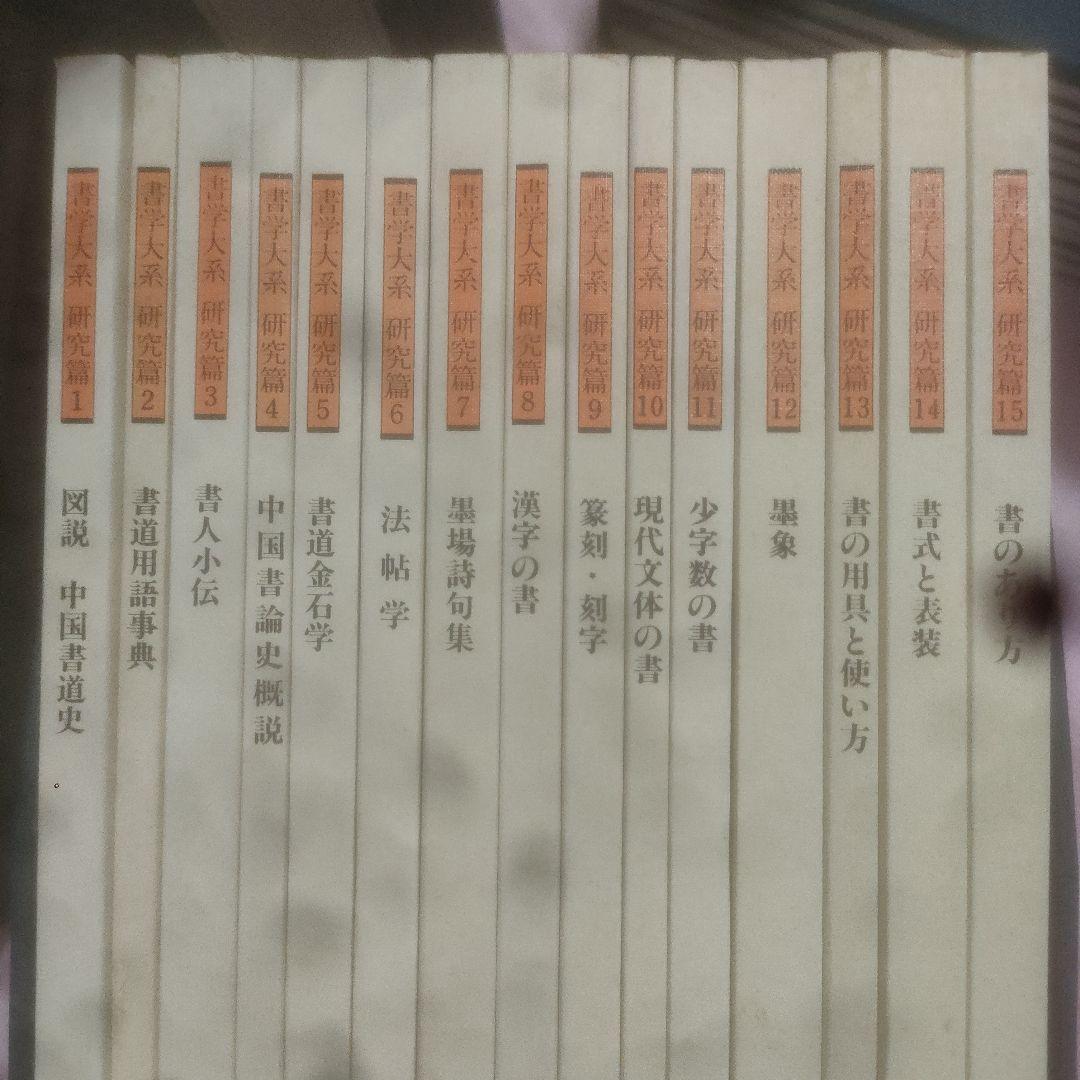 書学大系 研究篇 1
図説 中国書道史
書学大系 研究篇 2
書道用語事典
書学大系 研究篇 3
書人小伝
書学大系 研究篇 4
中国書論史概説
書学大系 研究篇 5
書道金石学
書学大系 研究篇 6
法帖学
書学大系 研究篇 7
墨場詩句集
書学大系 研究篇 8
漢字の書
書学大系 研究篇 9
篆刻・刻字
書学大系 研究篇 10
現代文体の書
書学大系 研究篇 11
少字数の書
書学大系 研究篇 12
墨象
書学大系 研究篇 13
書の用具と使い方
書学大系 研究篇 14
書式と表装
書学大系 研究篇 15
書の